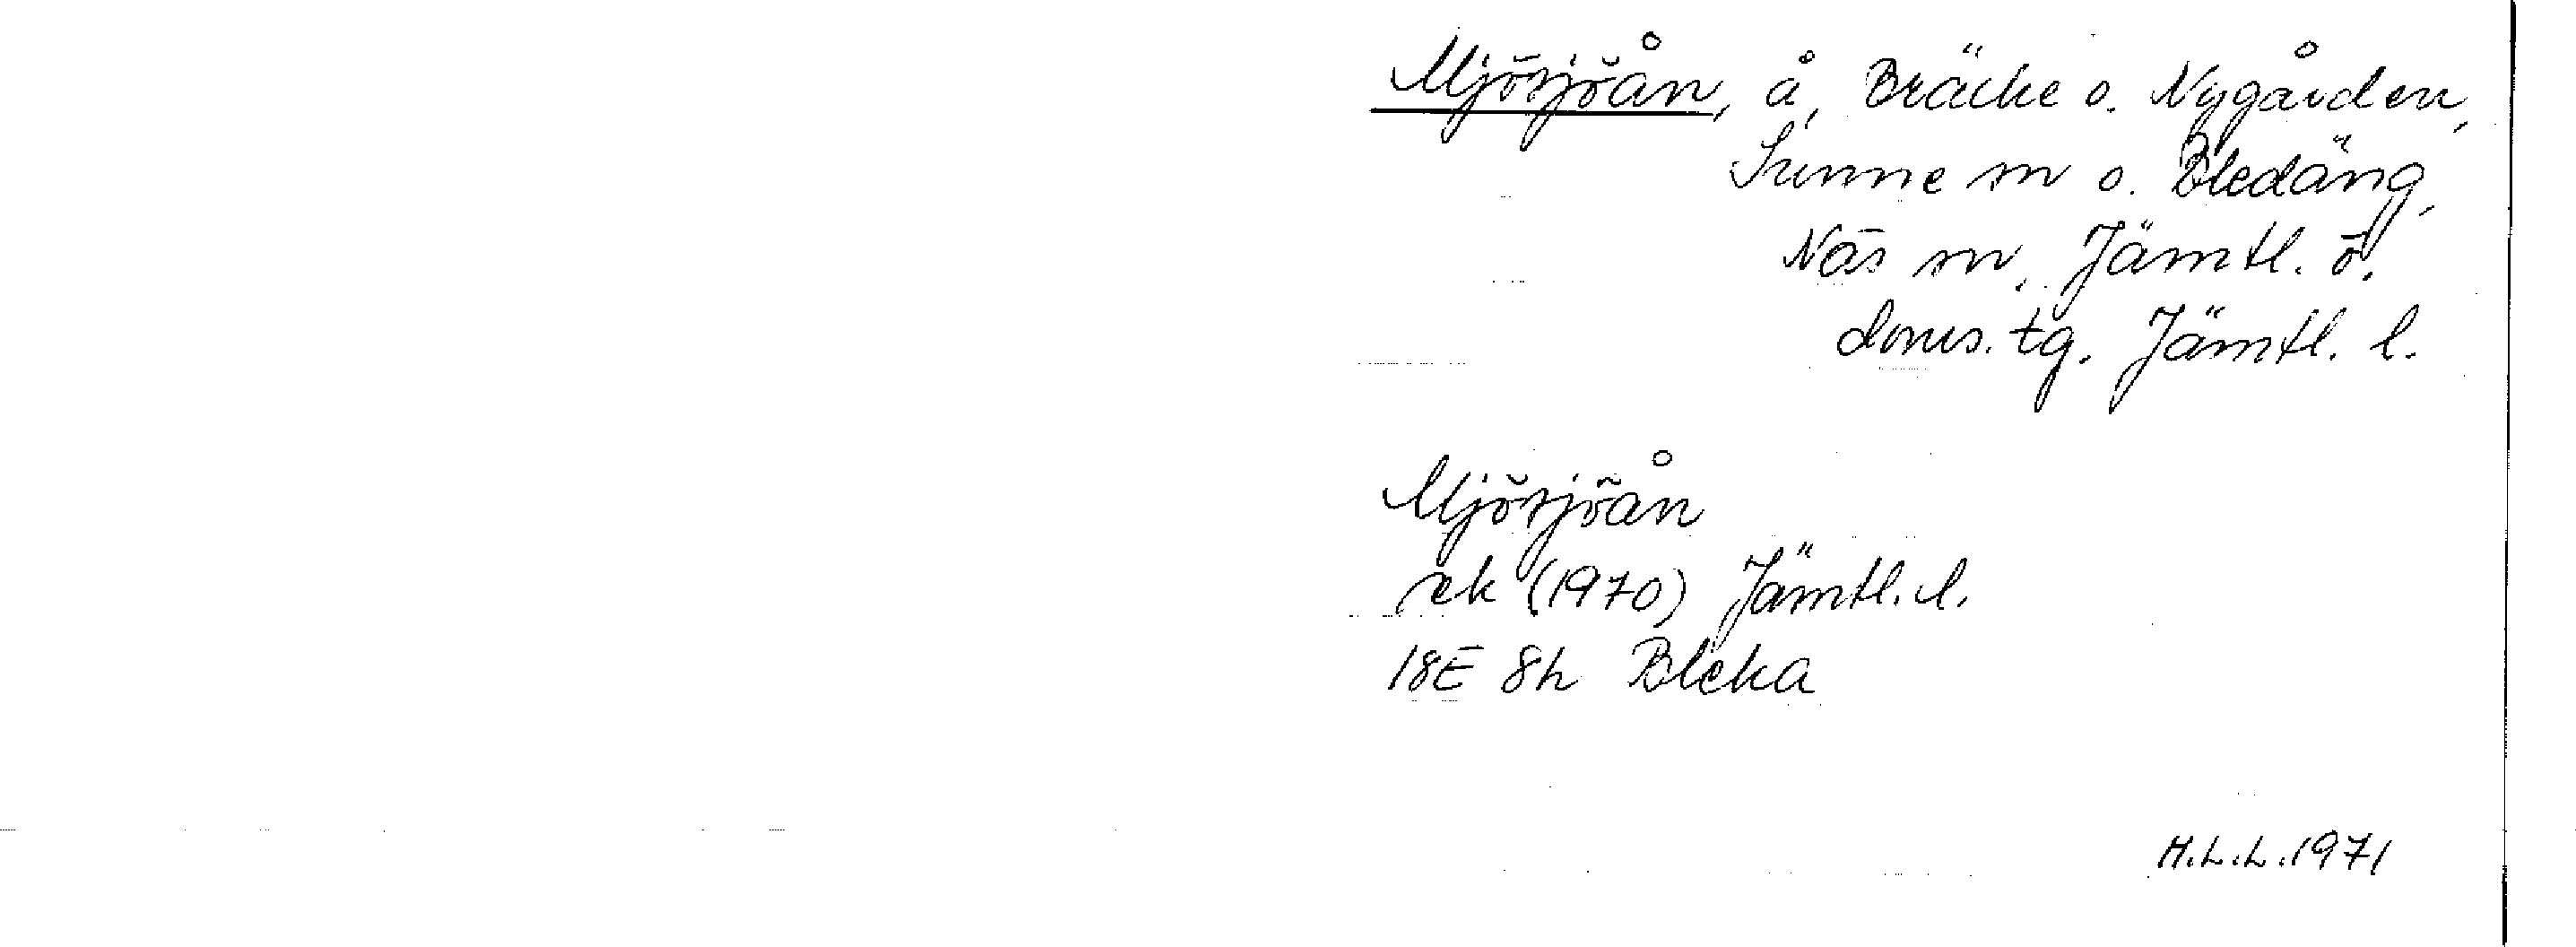 Mjösjöån, å, Bräcke o. Nygården,
Sunne sn o. Bledäng,
Näs sn, Jämtl. ö.
doms. tg. Jämtl. l.
Mjösjöån
rek (1970) Jämtl. l.
18E 8h Bleka
H.L.L. 1971